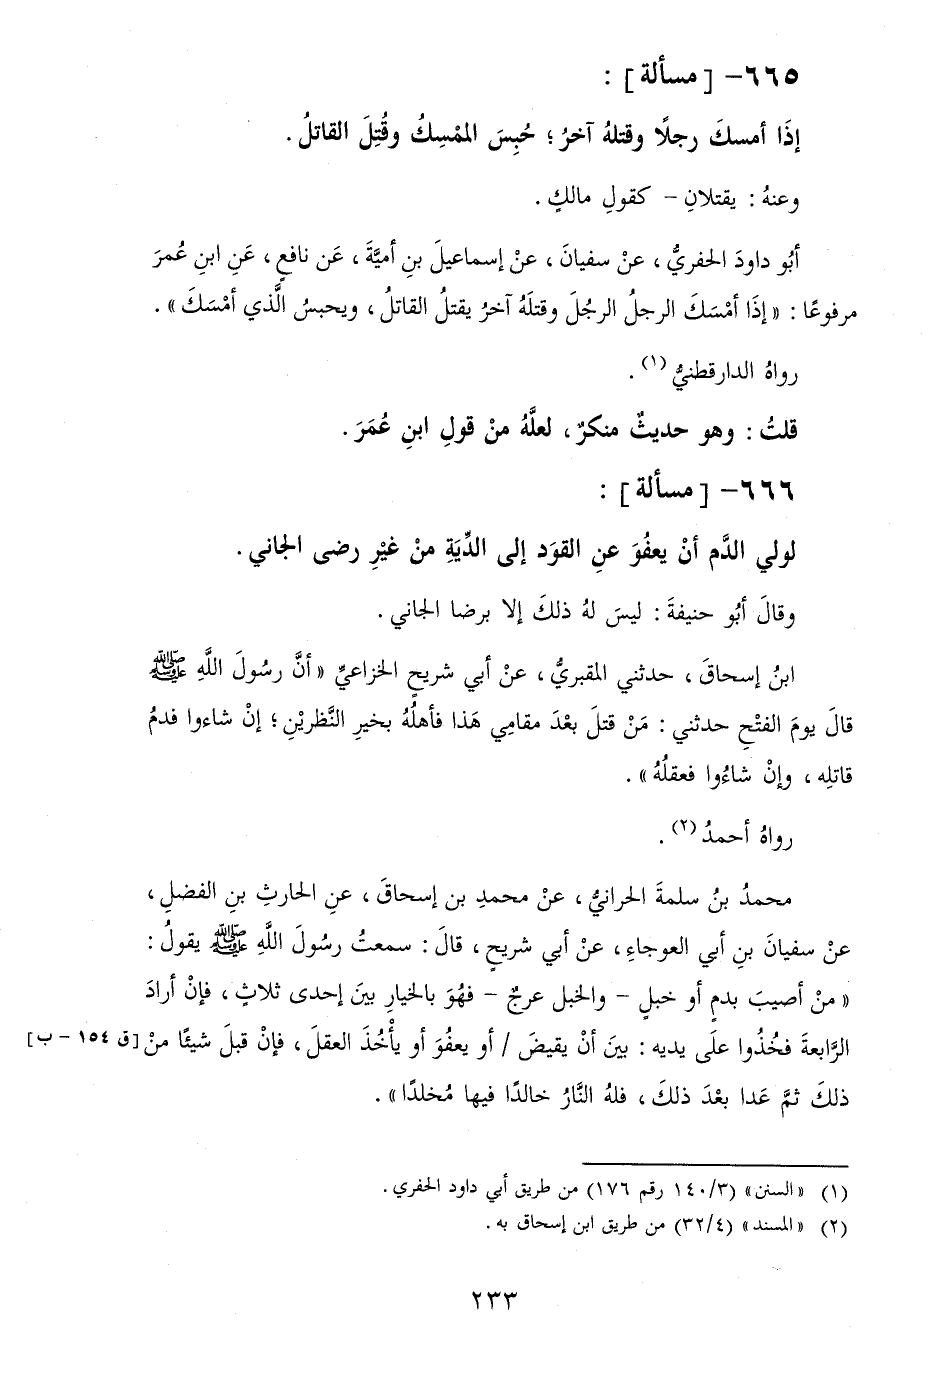 ٦٦٥- [مسألة] :
إذَا أمسكَ رجلًا وقتلهُ آخرُ ؛ حُبِسَ الممْسِكُ وقُتِلَ القاتلُ .
وعنهُ : يقتلانِ - كقولِ مالكٍ .
أبُو داودَ الحفريُّ ، عنْ سفيانَ ، عنْ إسماعيلَ بنِ أميَّةَ ، عَن نافعٍ ، عَنِ ابنِ عُمرَ
مرفوعًا : « إذَا أمْسَكَ الرجلُ الرجُلَ وقتلَهُ آخرُ يقتلُ القاتلُ ، ويحبسُ الَّذي أمْسَكَ » .
رواهُ الدارقطنيُّ (١) .
قلتُ : وهو حديثٌ منكرٌ ، لعلَّهُ منْ قولِ ابنِ عُمَرَ .
٦٦٦- [مسألة] :
لولي الدَّم أنْ يعفُوَ عنِ القوَد إلى الدِّيَةِ منْ غَيْرِ رضى الجاني .
وقالَ أبُو حنيفةَ : ليسَ لهُ ذلكَ إلا برضا الجاني .
ابنُ إسحاقَ ، حدثني المقبريُّ ، عنْ أبي شريحٍ الخزاعيِّ « أنَّ رسُولَ اللَّهِ ﷺ
قالَ يومَ الفتْحِ حدثني : مَنْ قتلَ بعْدَ مقامِي هَذا فأهلُهُ بخيرِ النَّظريْنِ ؛ إنْ شاءوا فدمُ
قاتلِه ، وإنْ شاءُوا فعقلُهُ » .
رواهُ أحمدُ (٢) .
محمدُ بنُ سلمةَ الحرانيُّ ، عنْ محمدِ بن إسحاقَ ، عنِ الحارثِ بنِ الفضلِ ،
عنْ سفيانَ بنِ أبي العوجاءِ ، عنْ أبي شريحٍ ، قالَ : سمعتُ رسُولَ اللَّهِ ﷺ يقولُ :
« منْ أصيبَ بدمٍ أو خبلٍ - والخبل عرجٌ - فهُوَ بالخيارِ بينَ إحدى ثلاثٍ ، فإنْ أرادَ
الرَّابعةَ فخُذُوا علَى يديه : بينَ أنْ يقيضَ / أو يعفُوَ أو يأْخُذَ العقلَ ، فإنْ قبلَ شيئًا منْ [ق ١٥٤ - ب]
ذلكَ ثمَّ عَدا بعْدَ ذلكَ ، فلهُ النَّارُ خالدًا فيها مُخلدًا » .
(١) « السنن » (٣/ ١٤٠ رقم ١٧٦) من طريق أبي داود الحفري .
(٢) « المسند » (٤/ ٣٢) من طريق ابن إسحاق به .
٢٣٣